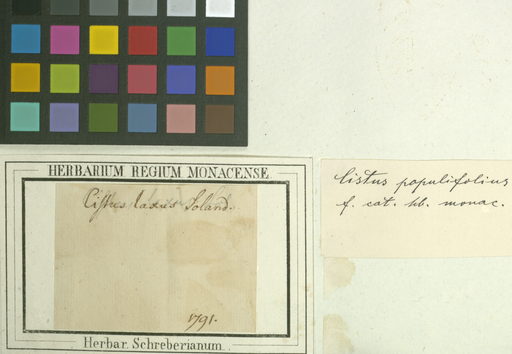 HERBARIUM REGIUM MONACENSE
Cistus laxus Soland.
1791.
Herbar. Schreberianum
Cistus populifolius
f. cat. hb. monac.